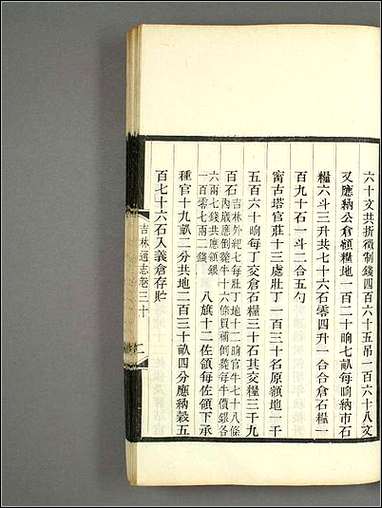 六十文共折徵制錢四百六十五吊一百六十八文
又應納公倉額糧地一百二十晌七畝每晌納市石
糧六斗三升共七十六石零四升一合合倉石糧一
百九十石一斗二合五勺
甯古塔官莊十三處壯丁一百三十名原額地一千
五百六十晌每丁交倉石糧三十石共交糧三千九
百石吉林外紀七每壯丁地十二晌官牛七十八條
石內歲應倒斃牛十六條頁補倒斃牛價銀各
六兩七錢共應領銀
一百零七兩二錢 八旗十二佐領每佐領下承
種官十九畝二分共地二百三十畝四分應納穀五
百七十六石入義倉存貯
吉林通志卷三十